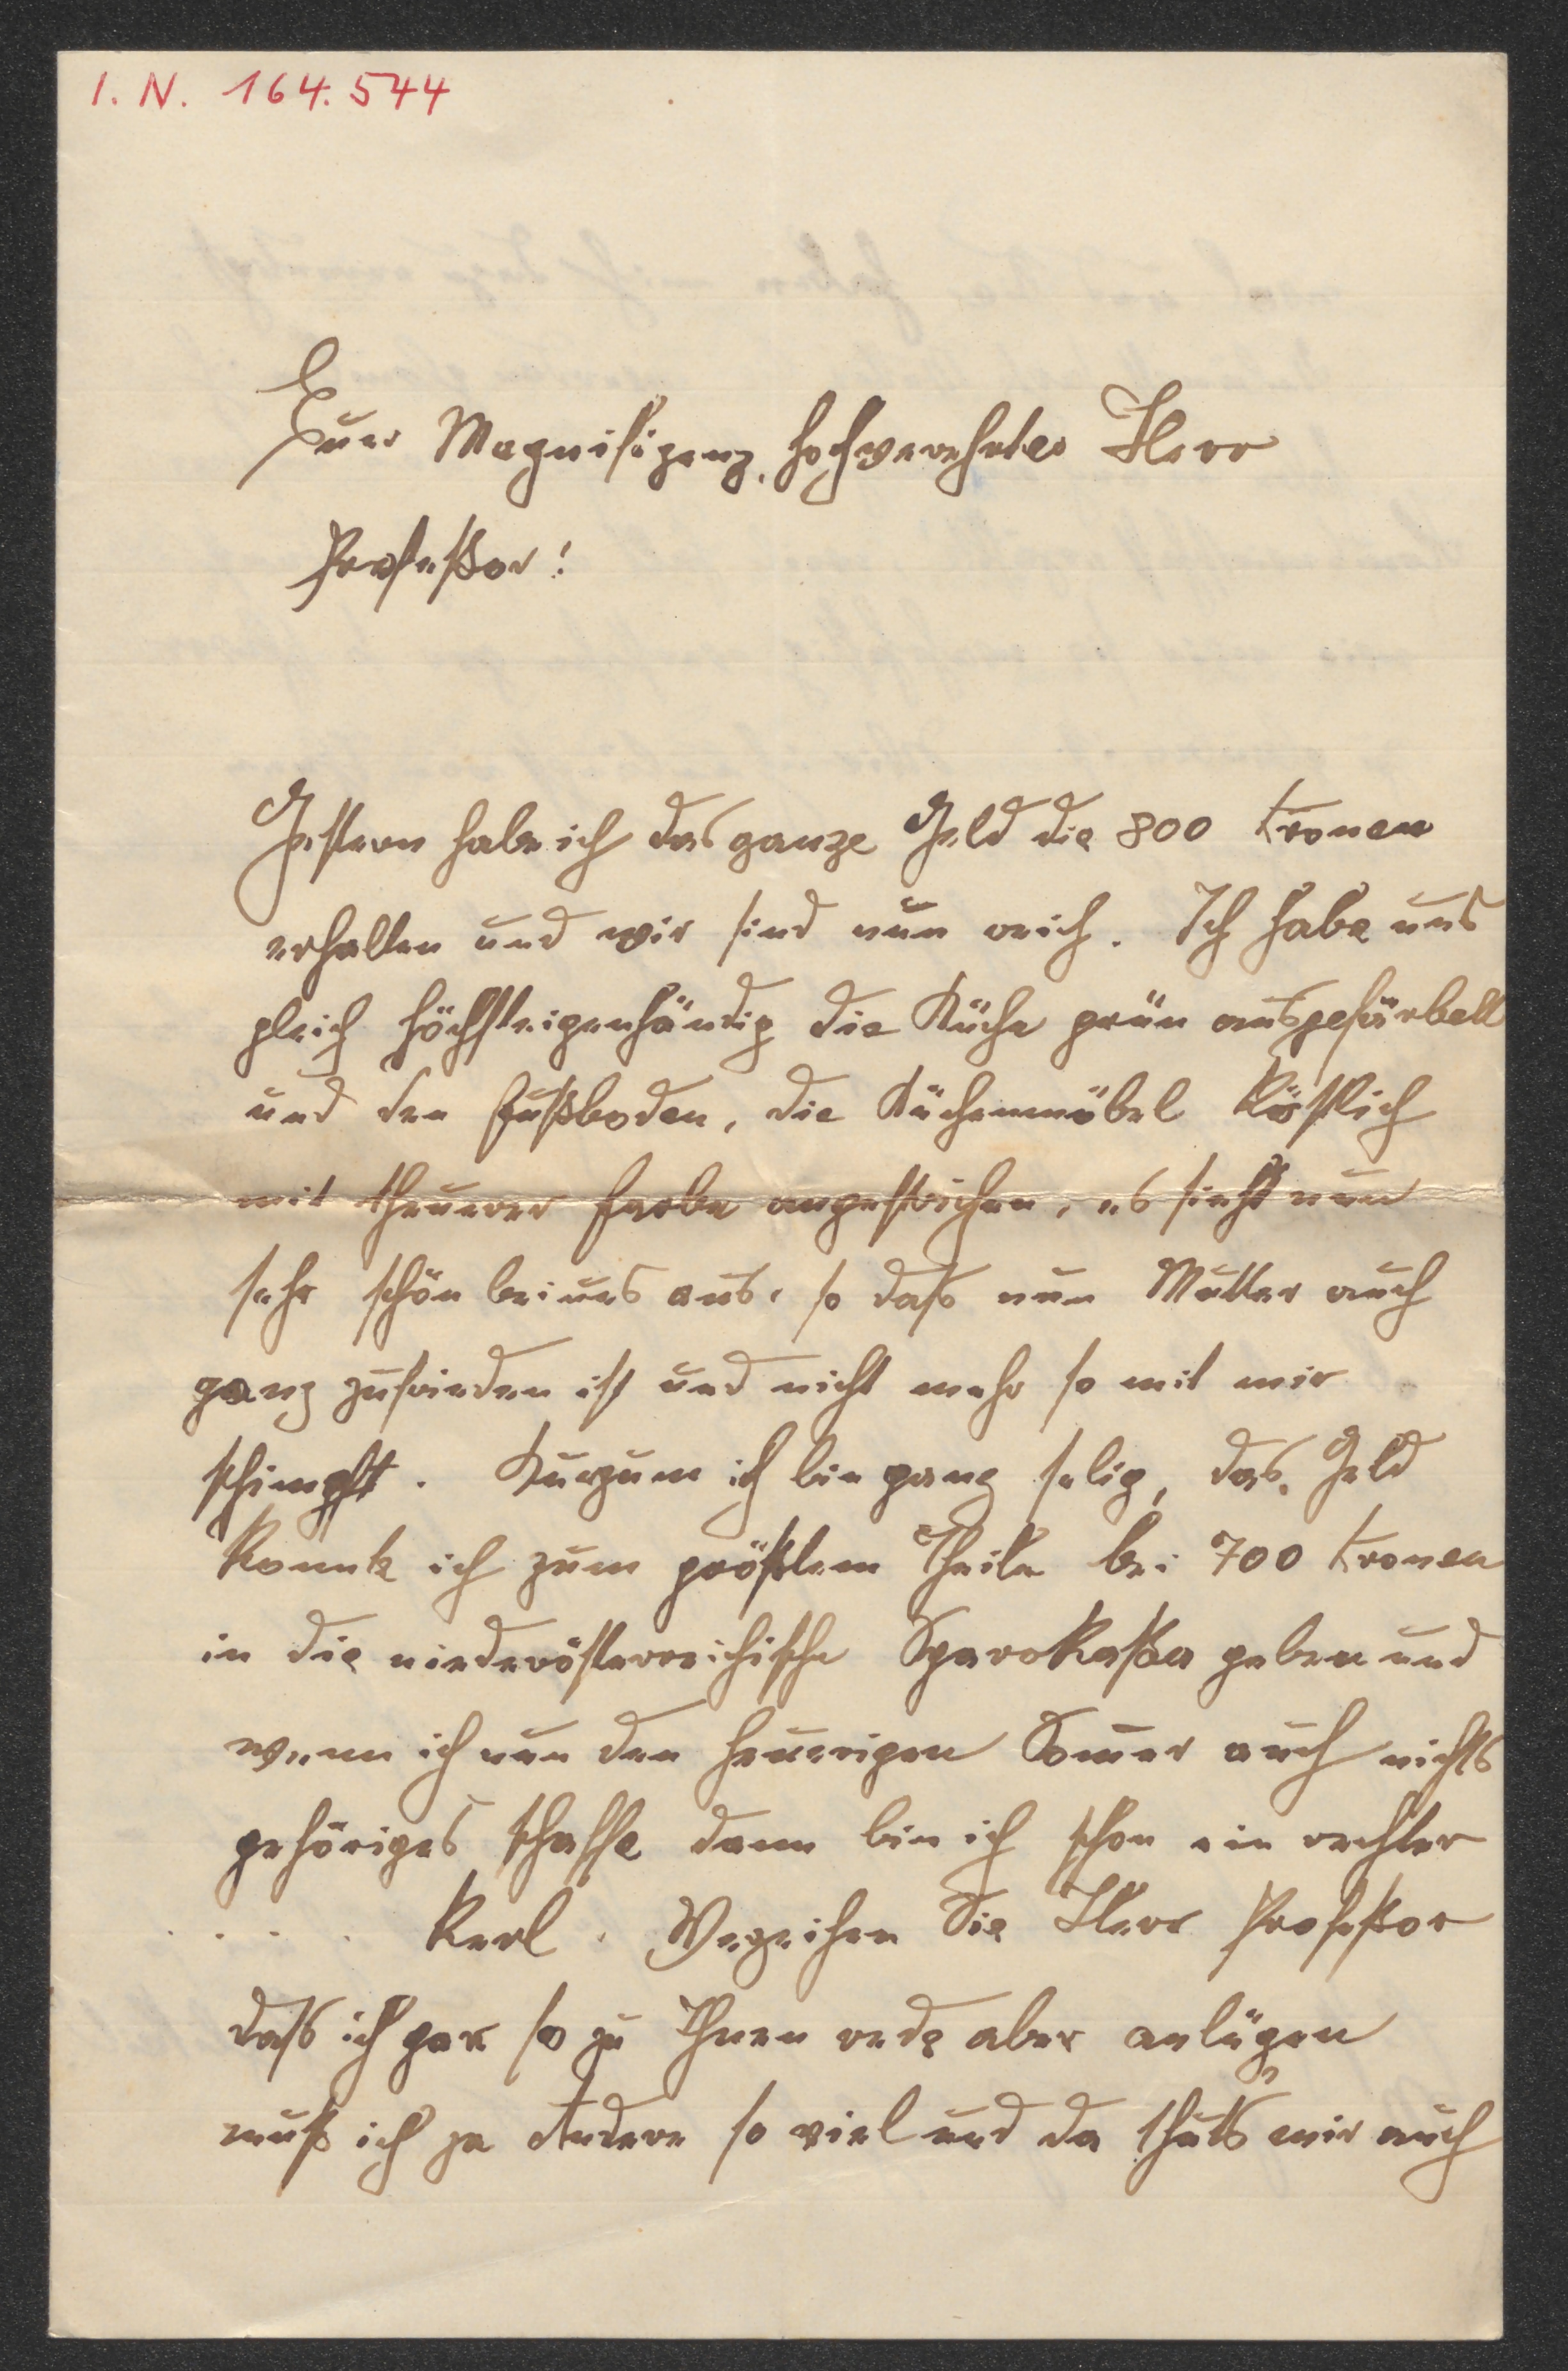 I. N. 164.544
Euer Magnifizenz, hochverehrter Herr
Professor!
Gestern habe ich das ganze Geld die 800 Kronen
erhalten und wir sind nun reich. Ich habe uns
gleich höchsteigenhändig die Küche grün ausgefärbelt
und den Fußboden, die Küchenmöbel köstlich
mit theuerer Farbe angestrichen, es sieht nun
sehr schön bei uns aus, so daß nun Mutter auch
ganz zufrieden ist und nicht mehr so mit mir
schimpft. Kurzum ich bin ganz selig, das Geld
konnte ich zum größtem Theile bei 700 Kronen
in die niederösterreichische Sparrkassa geben und
wenn ich nun den heurrigen Som̅er auch nichts
gehöriges schaffe dann bin ich schon ein rechter
. . . . Kerl. Verzeihen Sie Herr Professor
daß ich gar so zu Ihnen rede aber anlügen
muß ich ja Andere so viel und da thuts mir auch